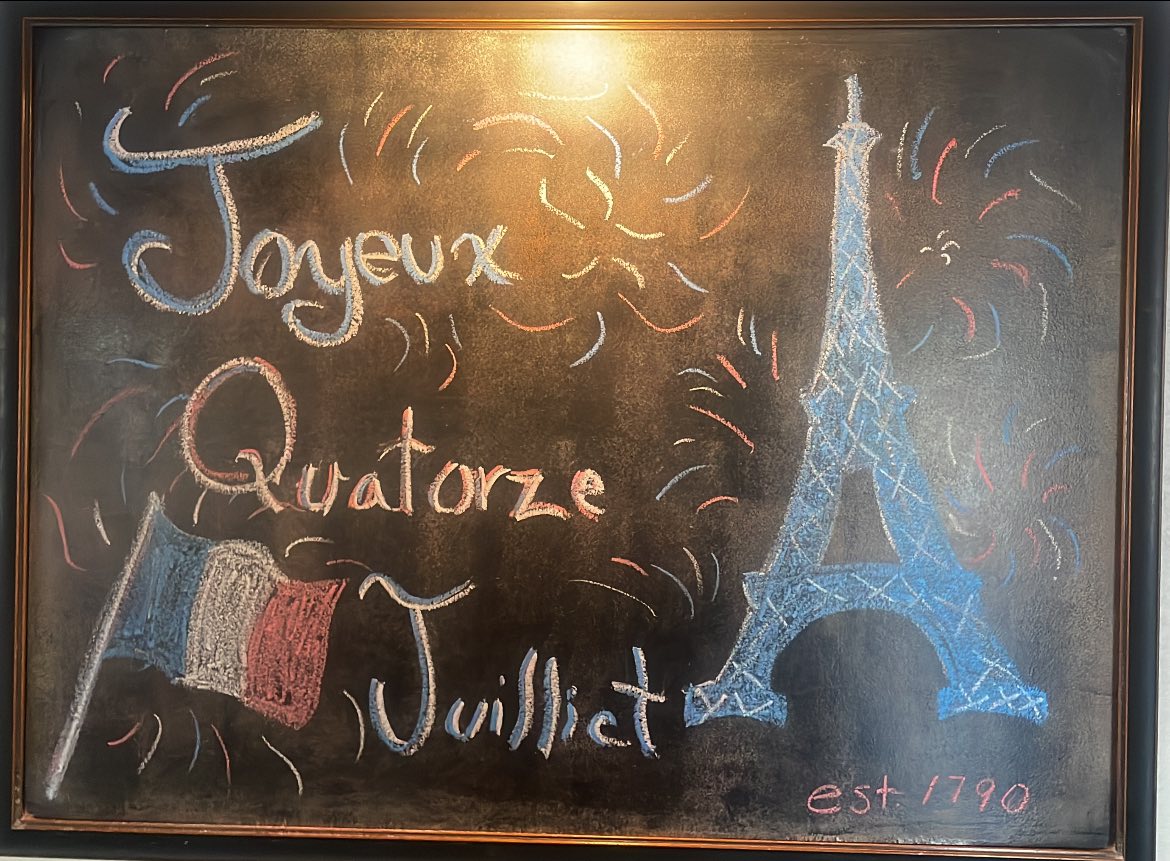 Joyeux
Quatorze
Juillet
est. 1790